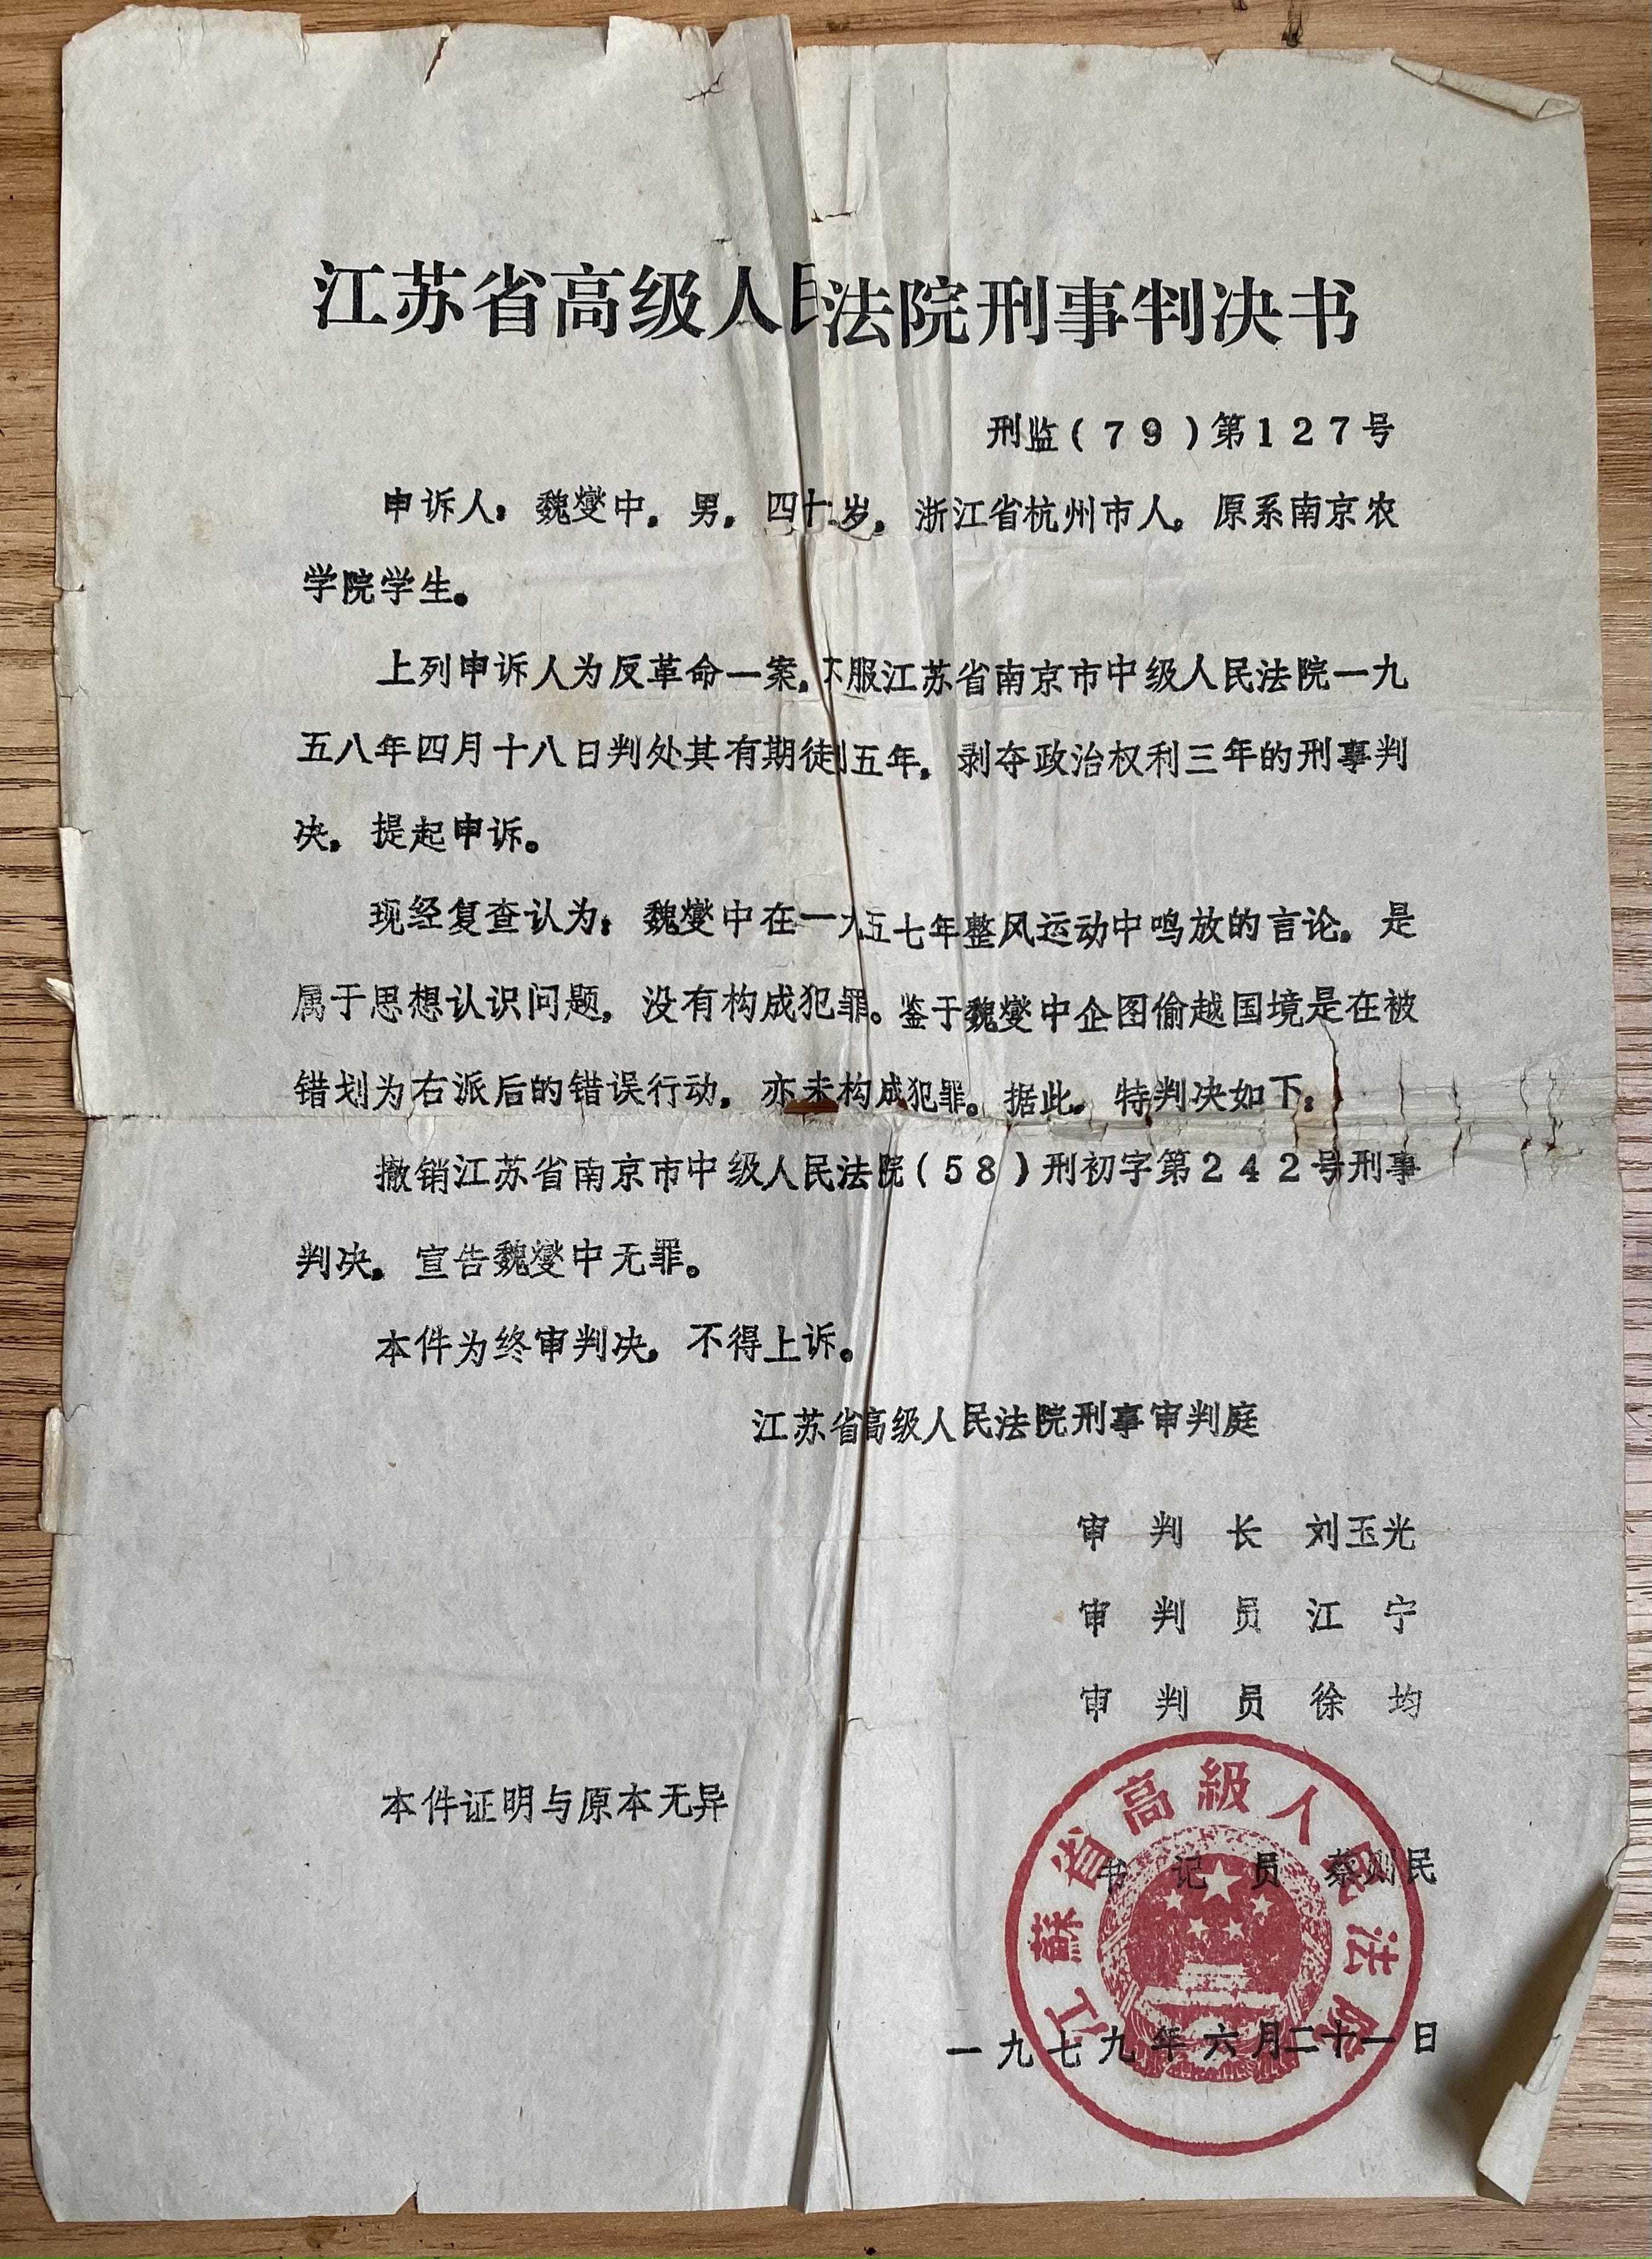 江苏省高级人民法院刑事判决书
刑监(79)第127号
申诉人:魏燮中,男,四十岁,浙江省杭州市人,原系南京农
学院学生。
上列申诉人为反革命一案,不服江苏省南京市中级人民法院一九
五八年四月十八日判处其有期徒刑五年,剥夺政治权利三年的刑事判
决,提起申诉。
现经复查认为:魏燮中在一九五七年整风运动中鸣放的言论,是
属于思想认识问题,没有构成犯罪。鉴于魏燮中企图偷越国境是在被
错划为右派后的错误行动,亦未构成犯罪。据此,特判决如下:
撤销江苏省南京市中级人民法院(58)刑初字第242号刑事
判决,宣告魏燮中无罪。
本件为终审判决,不得上诉。
江苏省高级人民法院刑事审判庭
审判长 刘玉光
审判员 江宁
审判员 徐均
本件证明与原本无异
书记员 蔡则民
一九七九年六月二十一日
江蘇省高級人民法院